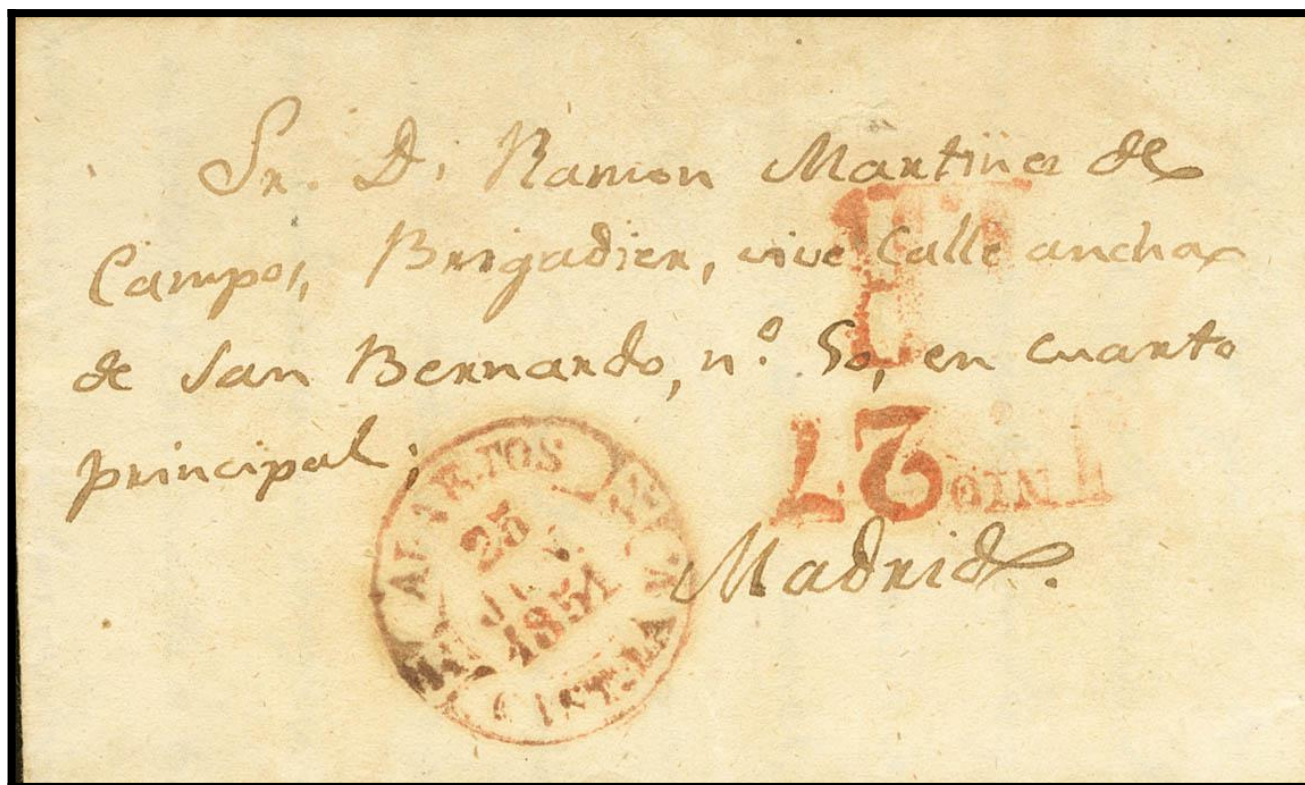 Sr. D. Ramon Martinez de
Campos, Brigadier, vive Calle ancha
de San Bernardo, nº. 50, en cuarto
principal;
Madrid.
25
JUN.
1851
27